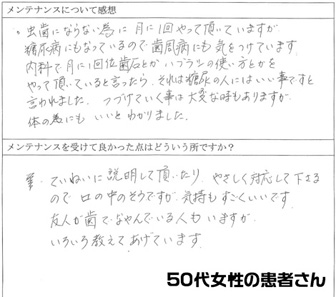 メンテナンスについて感想
・虫歯にならない為に月に1回やって頂いていますが
糖尿病にもなっているので歯周病にも気をつけています。
内科で月に1回位歯石とかハブラシの使い方とかを
やって頂いていると言ったら、それは糖尿の人にはいい事ですと
言われました。つづけていく事は大変な時もありますが、
体の為にもいいとわかりました。
メンテナンスを受けて良かった点はどういう所ですか?
ていねいに説明して頂いたり、やさしく対応して下さる
ので 口の中もそうですが、気持もすごくいいです。
友人が歯でなやんでいる人もいますが、
いろいろ教えてあげています。
50代女性の患者さん